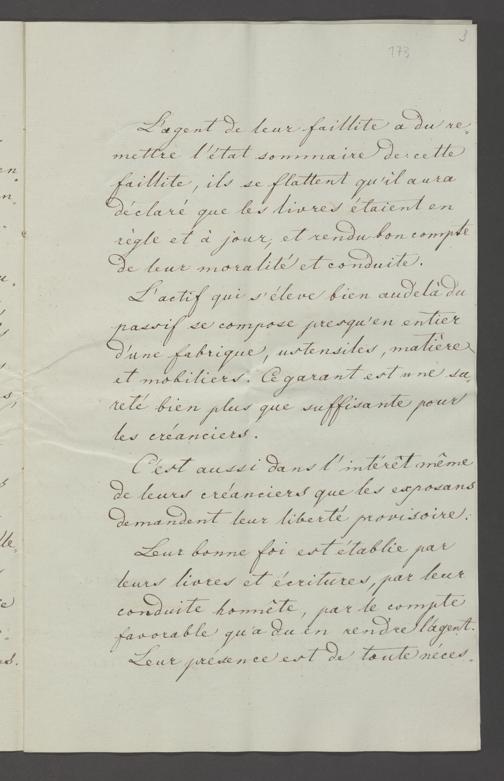 3
173
L'agent de leur faillite a du re-
mettre l'état sommaire de cette
faillite, ils se flattent qu'il aura
déclaré que les livres étaient en
règle et à jour, et rendu bon compte
de leur moralité et conduite.
L'actif qui s'éleve bien audelà du
passif se compose presqu'en entier
d'une fabrique, ustensiles, matière
et mobiliers. Ce garant est une su-
reté bien plus que suffisante pour
les créanciers.
C'est aussi dans l'intérêt même
de leurs créanciers que les exposans
demandent leur liberté provisoire.
Leur bonne foi est établie par
leurs livres et écritures, par leur
conduite honnête, par le compte
favorable qu'a du en rendre l'agent.
Leur présence est de toute néces-